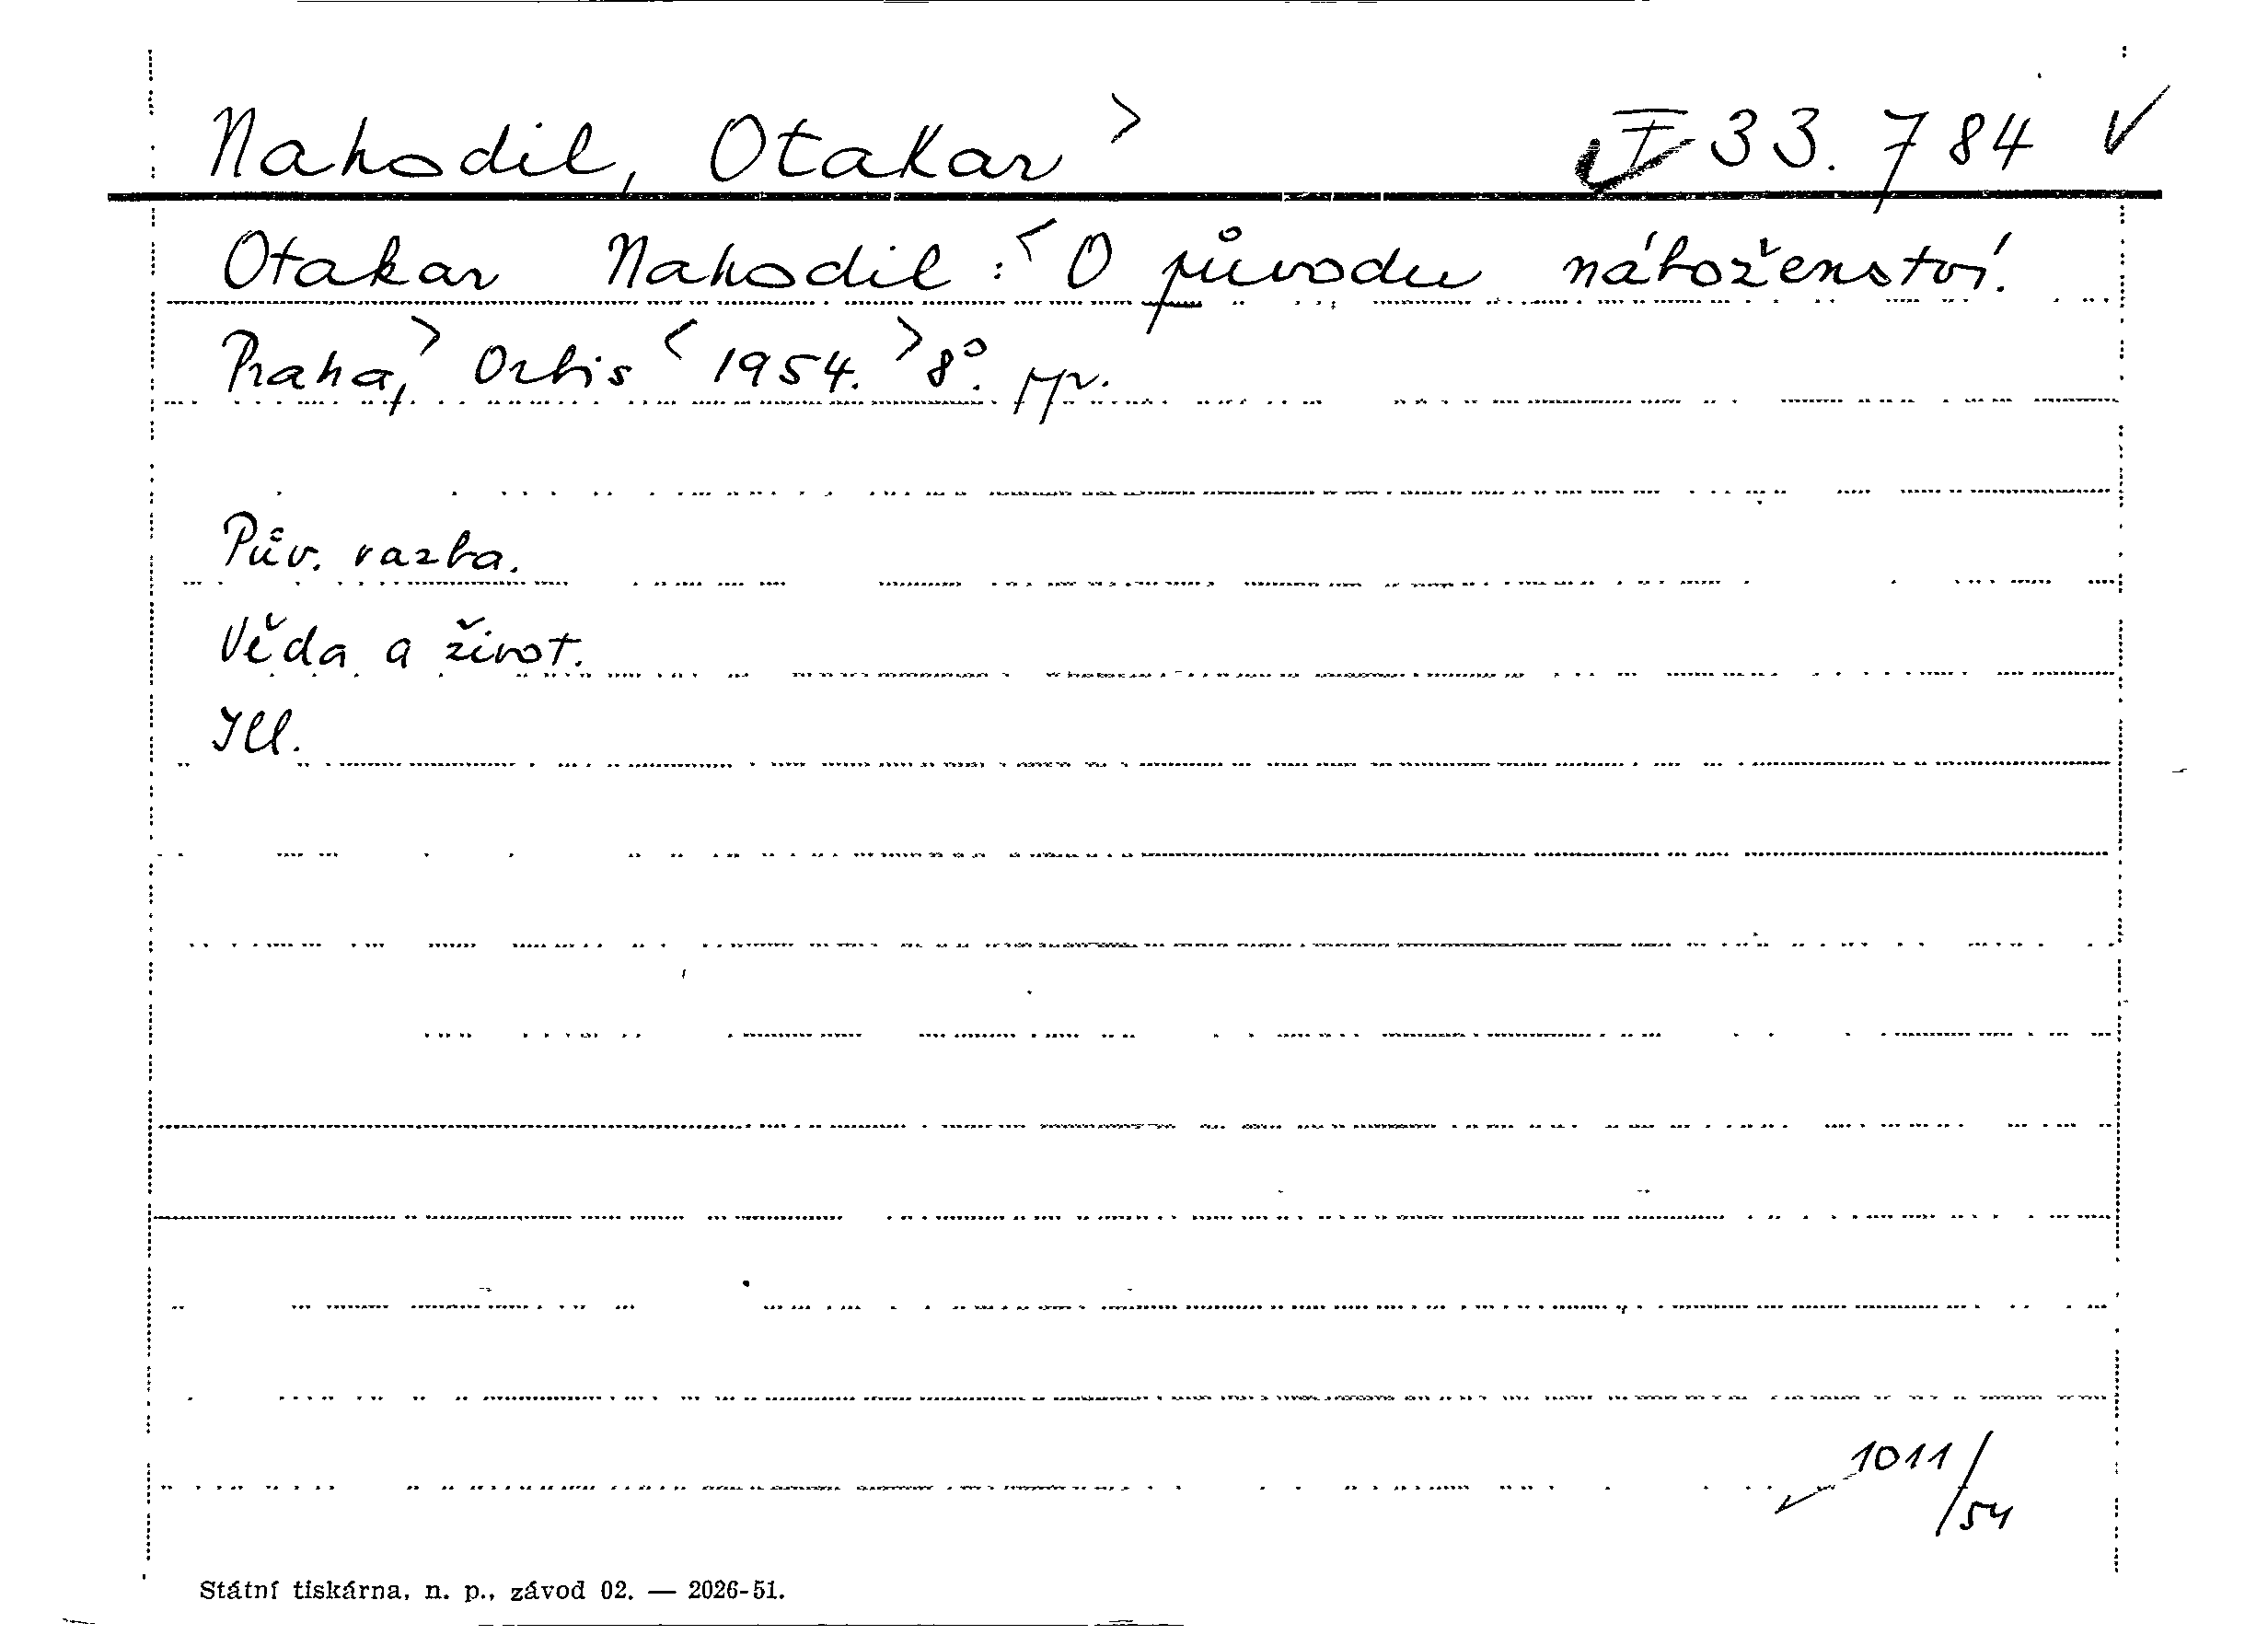 Nahodil, Otakar > I 33.784 ✓
Otakar Nahodil :< O původu náboženství.
Praha,> Orbis < 1954. > 8°. pp.
Pův. vazba.
Věda a život.
Ill.
1011/54
Státní tiskárna, n. p., závod 02. — 2026-51.